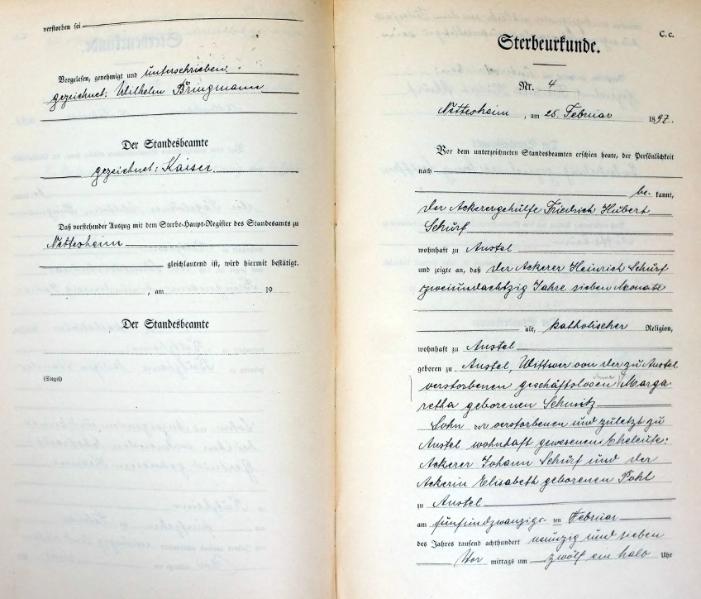 verstorben sei
Vorgelesen, genehmigt und unterschrieben
gezeichnet: Wilhelm Bringmann
Der Standesbeamte
gezeichnet: Kaiser.
Daß vorstehender Auszug mit dem Sterbe-Haupt-Register des Standesamts zu
Nettesheim
gleichlautend ist, wird hiermit bestätigt.
, am 19
Der Standesbeamte
(Siegel)
C. c.
Sterbeurkunde.
Nr. 4
Nettesheim, am 25. Februar 1897.
Vor dem unterzeichneten Standesbeamten erschien heute, der Persönlichkeit
nach
be kannt,
der Ackerergehülfe Friedrich Hubert
Schürf
wohnhaft zu Anstel
und zeigte an, daß der Ackerer Heinrich Schürf
zweiundachtzig Jahre sieben Monate
alt, katholischer Religion,
wohnhaft zu Anstel
geboren zu Anstel, Wittwer von der zu Anstel
verstorbenen geschäftslosen Marga
retha geborenen Schmitz
Sohn der verstorbenen und zuletzt zu
Anstel wohnhaft gewesenen Eheleute:
Ackerer Johann Schürf und der
Ackerin Elisabeth geborenen Pohl
zu Anstel
am fünfundzwanzigsten Februar
des Jahres tausend achthundert neunzig und sieben
Vor mittags um zwölf ein halb Uhr